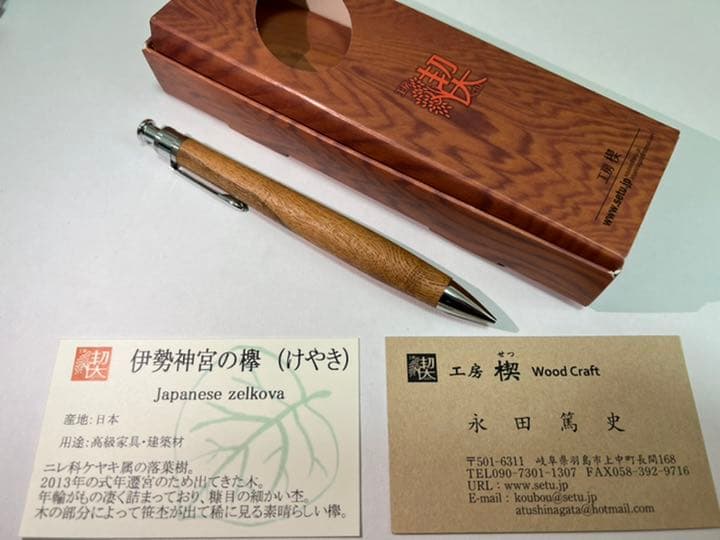 楔
工房 楔
www.setu.jp
楔
伊勢神宮の欅 (けやき)
Japanese zelkova
産地:日本
用途:高級家具・建築材
ニレ科ケヤキ属の落葉樹。
2013年の式年遷宮のため出てきた木。
年輪がもの凄く詰まっており、糠目の細かい杢。
木の部分によって笹杢が出て稀に見る素晴らしい欅。
楔
せつ
工房 楔 Wood Craft
永田篤史
〒501-6311 岐阜県羽島市上中町長間168
TEL090-7301-1307 FAX058-392-9716
URL:www.setu.jp
E-mail:koubou@setu.jp
atushinagata@hotmail.com